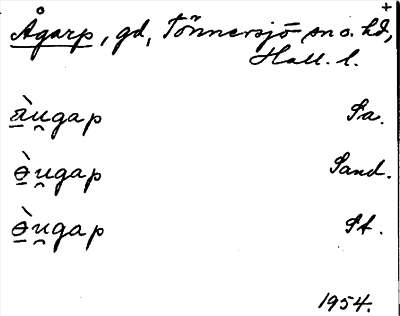 +
Ågarp, gd, Tönnersjö sn o. hd,
Hall. l.
à̱u̯gap Sa.
ə̱̀u̯gap Sand.
ə̱̀u̯gap St.
1954.